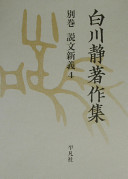 白川静著作集
別巻 説文新義 4
平凡社